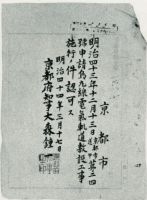 京都市
明治四十三年二月十三日
號申請烏丸線電氣軌道敷設工事
施行ノ件認可ス
明治四十四年三月十七日
京都府知事大森鍾一